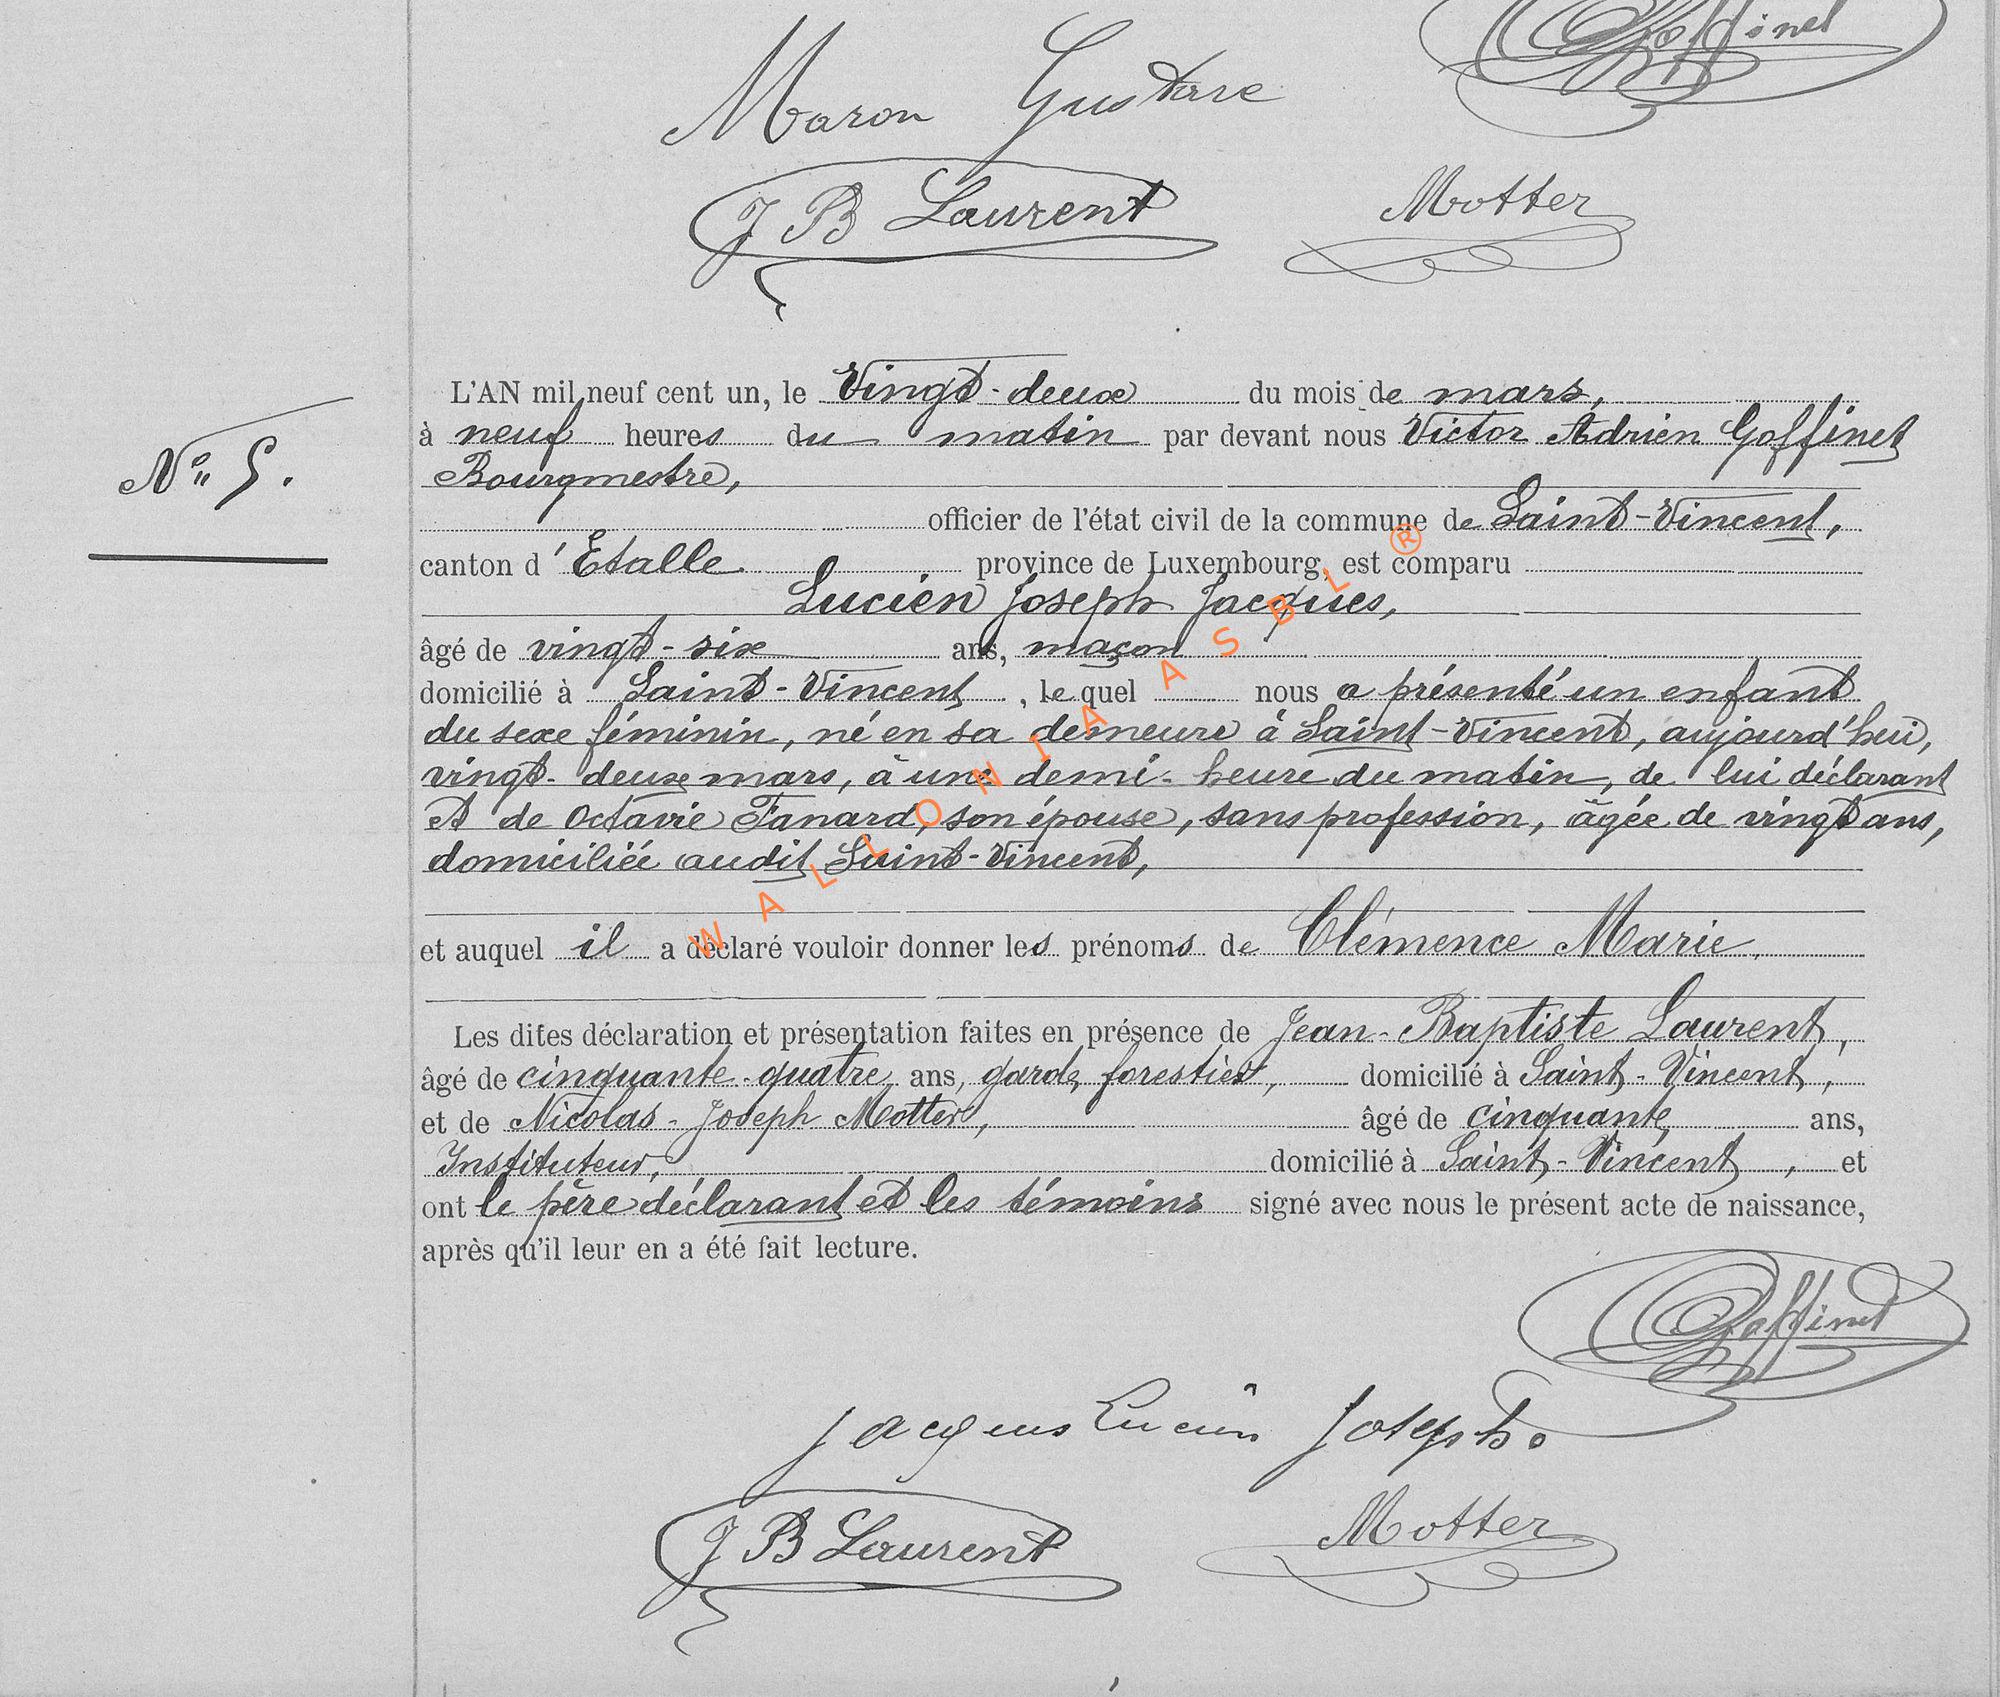 Goffinet
Maron Gustave
J B Laurent Motter
L'AN mil neuf cent un, le Vingt-deux du mois de mars,
à neuf heures du matin par devant nous Victor Adrien Goffinet
Nº 5. Bourgmestre,
officier de l'état civil de la commune de Saint-Vincent,
canton d'Etalle province de Luxembourg, est comparu
Lucien Joseph Jacques,
âgé de vingt-six ans, maçon
domicilié à Saint-Vincent, lequel nous a présenté un enfant
du sexe féminin, né en sa demeure à Saint-Vincent, aujourd'hui,
vingt-deux mars, à une demi-heure du matin, de lui déclarant
et de Octavie Fanard, son épouse, sans profession, âgée de vingt ans,
domiciliée audit Saint-Vincent,
et auquel il a déclaré vouloir donner les prénoms de Clémence Marie.
Les dites déclaration et présentation faites en présence de Jean-Baptiste Laurent,
âgé de cinquante-quatre ans, garde forestier, domicilié à Saint-Vincent,
et de Nicolas-Joseph Motter, âgé de cinquante ans,
Instituteur, domicilié à Saint-Vincent, et
ont le père déclarant et les témoins signé avec nous le présent acte de naissance,
après qu'il leur en a été fait lecture.
Goffinet
Jacques Lucien Joseph.
J B Laurent Motter
WALLONIA ASBL ®